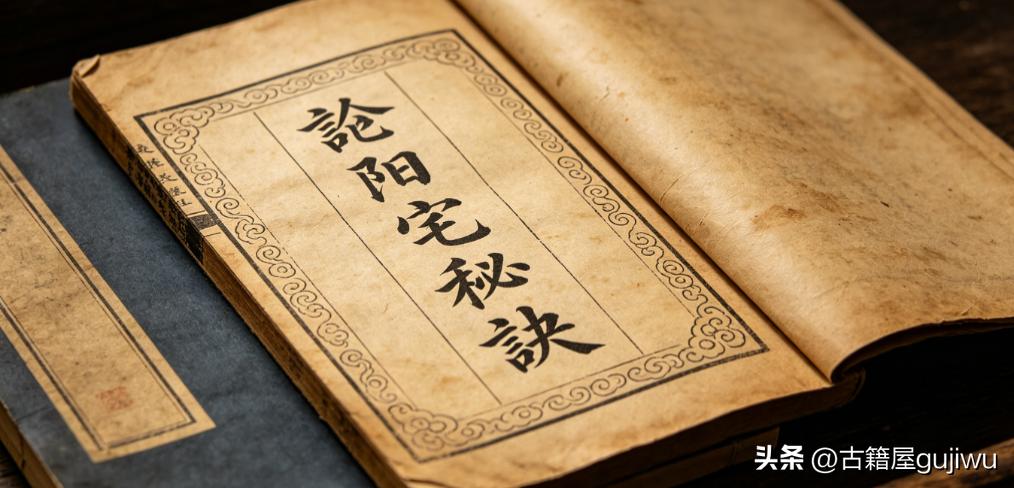 論阳宅秘訣
头条 @古籍屋gujiwu